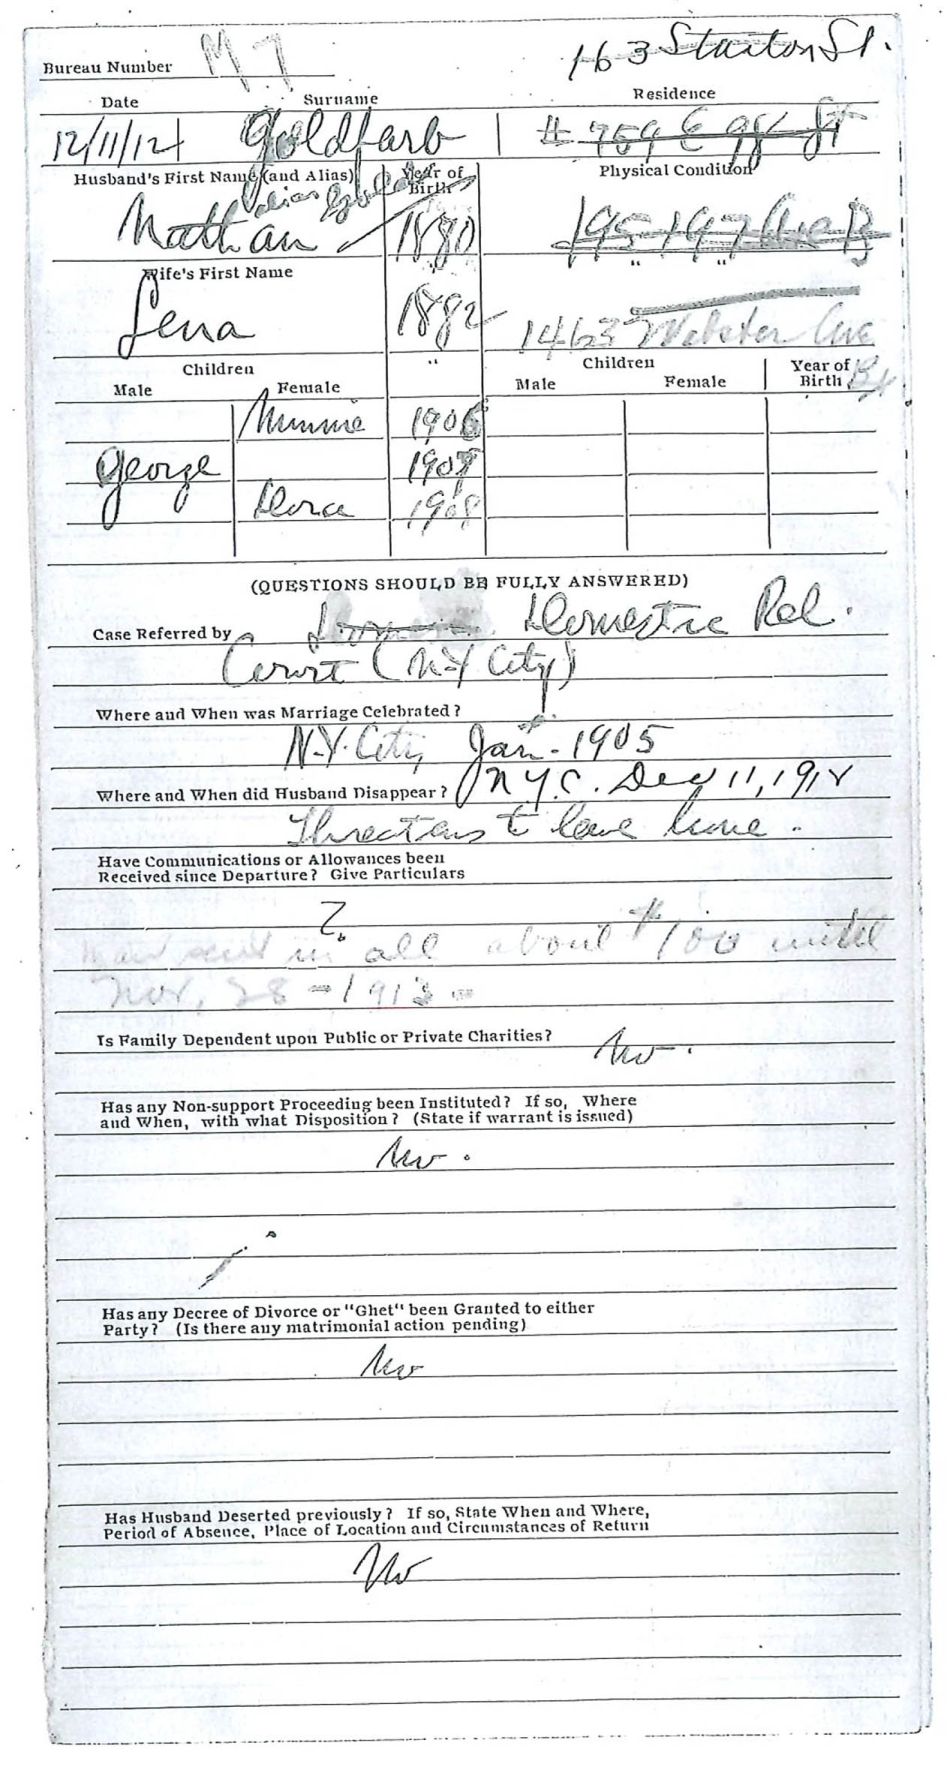 163 Stanton St.
Bureau Number M 7
Date Surname Residence
12/11/12 Goldfarb # 759 E 98 St
Husband's First Name (and Alias) Year of Birth Physical Condition
alias
Nathan 1880 195-197 Ave B
Wife's First Name " " "
Lena 1882 1463 Webster Ave
Children " Children Year of
Male Female Male Female Birth Bx
Minnie 1906
George 1907
Dora 1908
(QUESTIONS SHOULD BE FULLY ANSWERED)
Case Referred by Domestic Rel.
Court (N-Y City)
Where and When was Marriage Celebrated?
N-Y. City, Jan - 1905
Where and When did Husband Disappear? N.Y.C. Dec 11, 1912
Threatens to leave home -
Have Communications or Allowances been
Received since Departure? Give Particulars
?
man sent in all about $100 until
Nov, 28 - 1913 -
Is Family Dependent upon Public or Private Charities? No.
Has any Non-support Proceeding been Instituted? If so, Where
and When, with what Disposition? (State if warrant is issued)
No.
Has any Decree of Divorce or "Ghet" been Granted to either
Party? (Is there any matrimonial action pending)
No
Has Husband Deserted previously? If so, State When and Where,
Period of Absence, Place of Location and Circumstances of Return
No